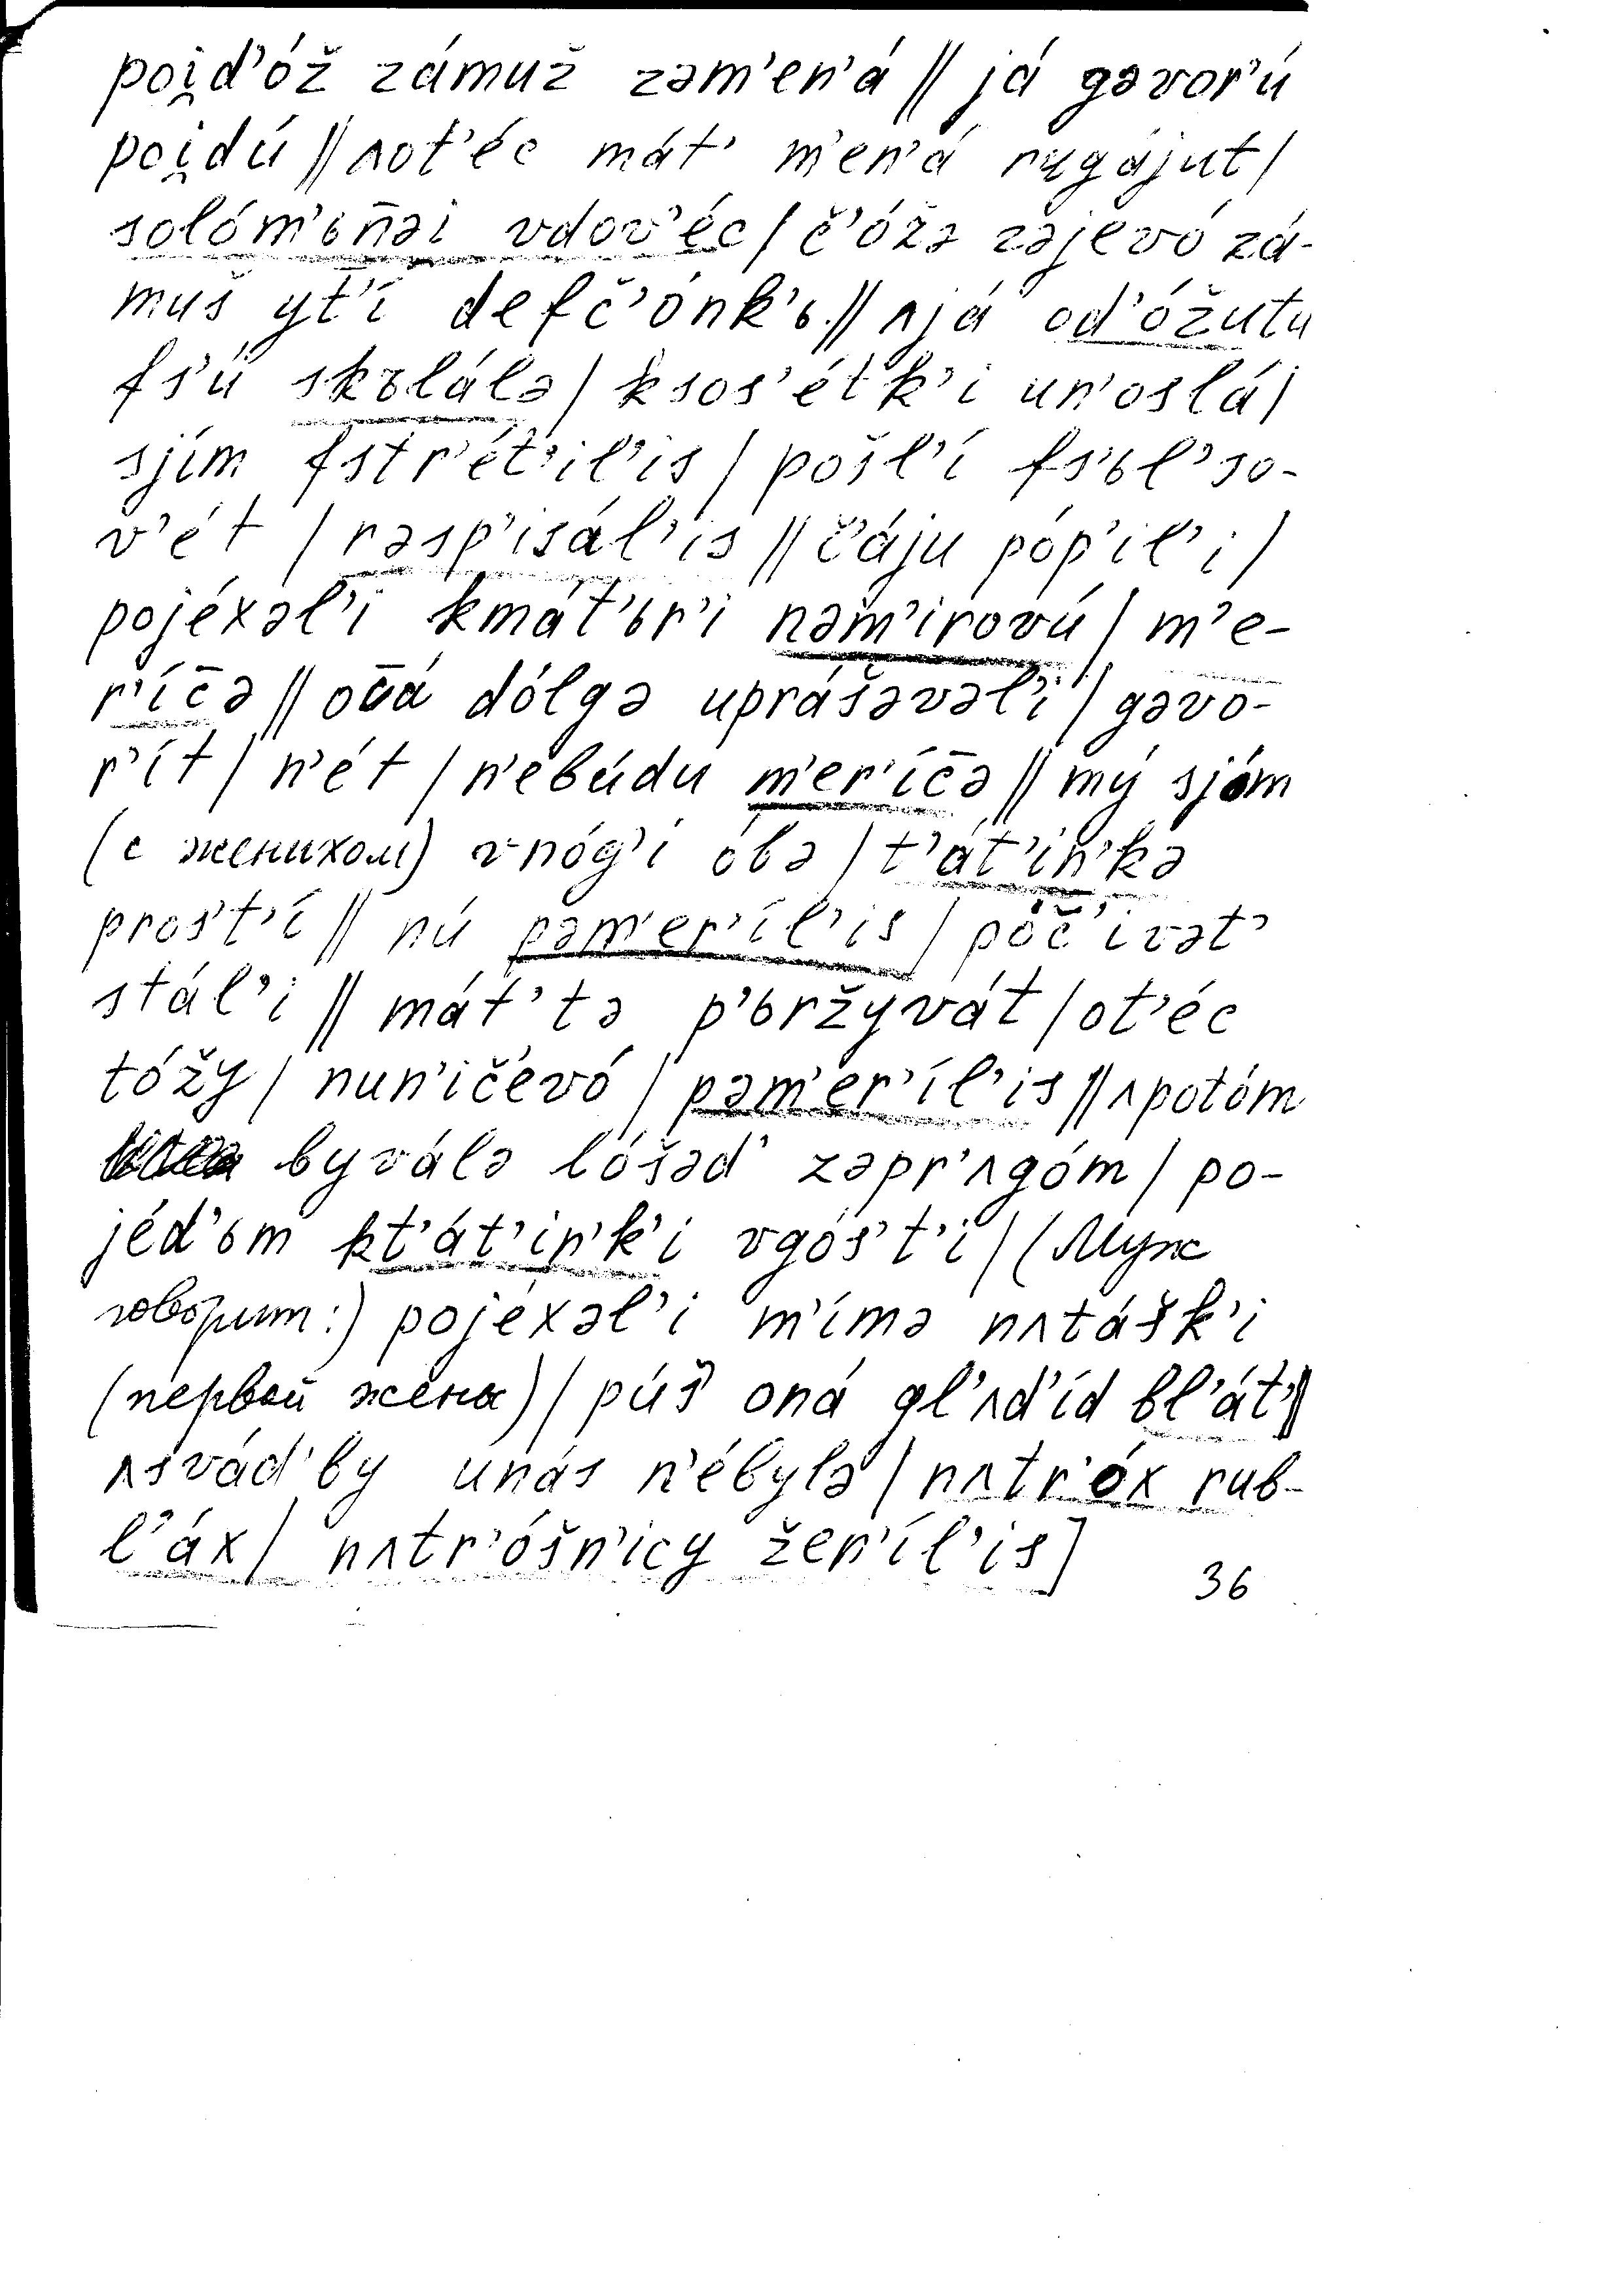 poi̯d’óž zámuž zəm’en’á // já gəvor’ú
poi̯dú // ʌot’éc mát’ m’en’á rugájut /
solóm’ьn̄əi vdov’éc / č’óžə zəjevó zá-
muš yt’í defč’ónk’ь // ʌjá od’óžutu
fs’ú skъlálə / ksos’étk’i un’oslá /
sjím fstr’ét’il’is / pošl’í fs’ьl’so-
v’ét / rəsp’isál’is // č’áju póp’il’i /
pojéxəl’i kmát’ьr’i nəm’irovú / m’e-
r’íc̄ə // dólgə uprášəvəl’i / gəvo-
r’ít / n’ét / n’ebúdu m’er’íc̄ə // mý sjóm
(с женихом) vnóg’i óbə / t’át’in’kə
pros’t’í // nú pəm’er’íl’is / póč’ivət’
stál’i // mát’tə p’ьržyvát / ot’éc
tóžy / nun’ičevó / pəm’er’íl’is // ʌpotóm
byválə lóšəd’ zəpr’ʌgóm / po-
jéd’ьm kt’át’in’k’i vgós’t’i / (Муж
говорит:) pojéxəl’i m’ímə nʌtášk’i
(первой жены) / púš oná gl’ʌd’íd bl’át’ //
ʌsvád’by unás n’ébylə / nʌtr’óx rub-
l’áx / nʌtr’óšn’icy žen’íl’is]
36